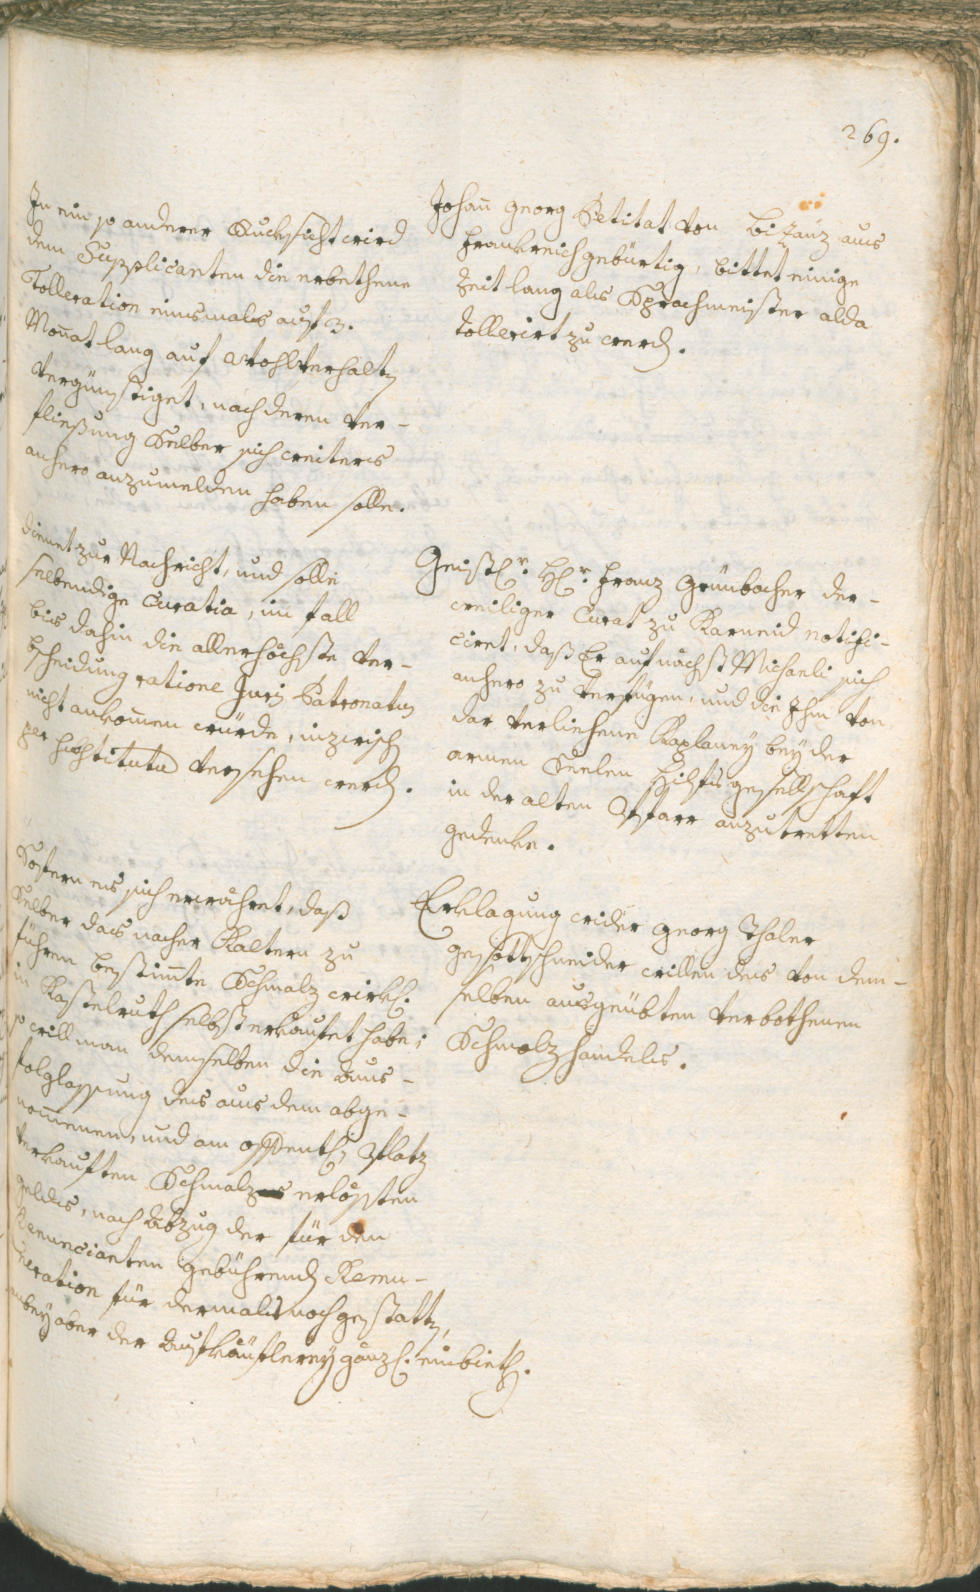 269.
Johann Georg Petitat von Bizanz aus
Frankreich gebürtig, bittet einige
Zeit lang als Sprachmeister alda
tollerirt zu werd.
In ein so anderer Rucksicht wird
dem Supplicanten die erbethene
Tolleration einsmals auf 3.
Monat lang auf Wohlverhaltn
vergünstiget, nach deren ver-
fließung Selber sich weiters
anhero anzumelden haben solle.
Geistl. H. Franz Grünbacher der-
weiliger Curat zu Karneid notifi-
ciret, daß Er auf nächst Michaeli sich
anhero zu verfügen, und die Ihm von
dar verliehene Kaplaney bey der
armen Seelen Hilfsgesellschaft
in der alten Pfarr anzutretten
gedenke.
dienet zur Nachricht, und solle
selbendige Curatia, im fall
bis dahin die allerhöchste ver-
bscheidung ratione Juris Patronatus
nicht ankommen wurde, inzwisch
per substitutu versehen werd.
Erklagung wider Georg Thaler
gsottschneider willen des von dem-
selben ausgeübten verbothenen
Schmalzhandels.
Sofern es sich erwahret, daß
Selber das nacher Kaltern zu
führen bestimte Schmalz wirkl.
in Kastelruth selbst erkaufet habe;
so will man demselben die Aus-
folglassung des aus dem abge-
nommenen, und am offentl. Platz
verkauften Schmalz erlösten
geldes, nach Abzug der für den
Denuncianten gebührend Remu-
neration für dermals noch gestattn,
anbey aber der Aufkäuflerey gänzl. einbieth.